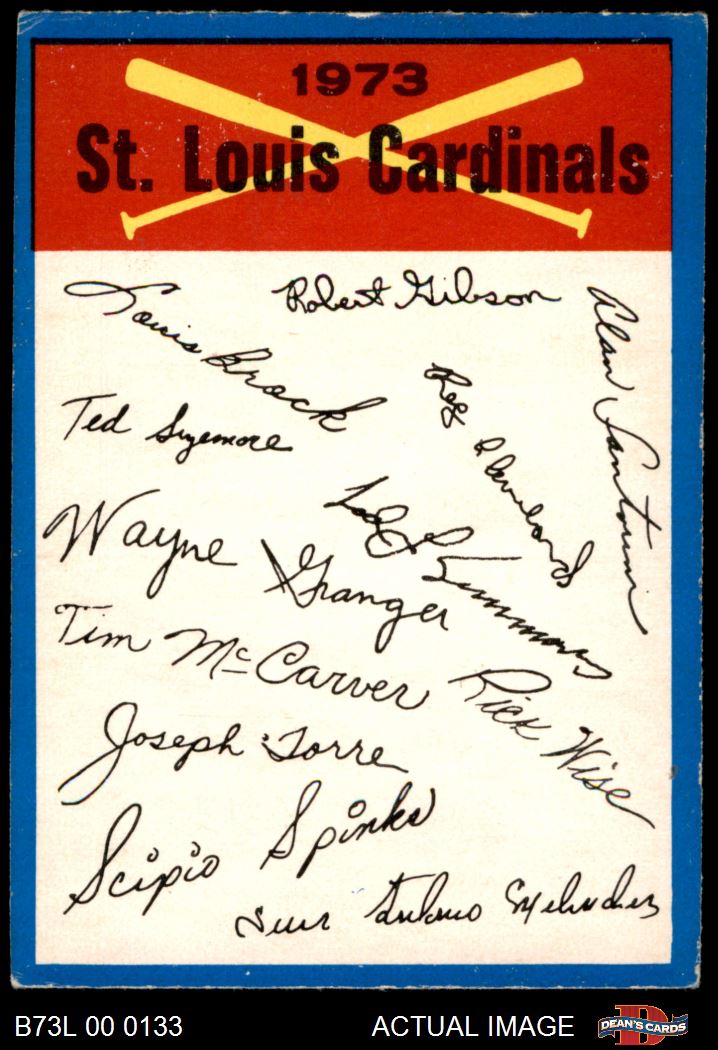 1973
St. Louis Cardinals
Robert Gibson
Louis Brock
Alan Santorini
Reg Cleveland
Ted Sizemore
Ted L Simmons
Wayne Granger
Tim McCarver
Rick Wise
Joseph Torre
Scipio Spinks
Luis Antonio Melendez
B73L 00 0133
ACTUAL IMAGE
D
DEAN'S CARDS